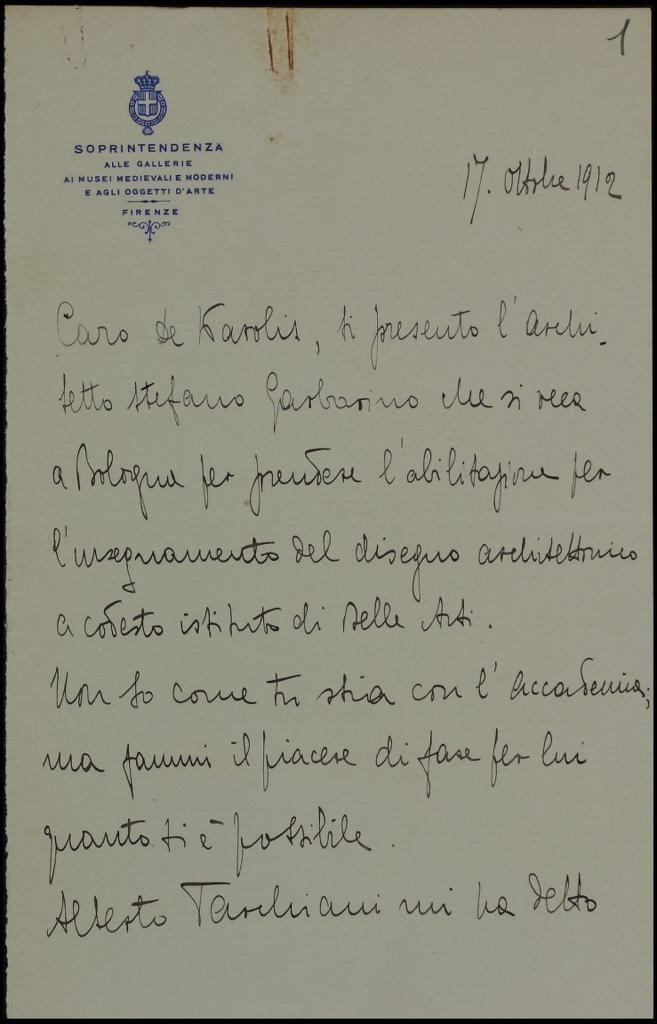 1
SOPRINTENDENZA
ALLE GALLERIE
AI MUSEI MEDIEVALI E MODERNI
E AGLI OGGETTI D'ARTE
FIRENZE
17. Ottobre 1912
Caro de Karolis, ti presento l'archi-
tetto Stefano Garbarino che si reca
a Bologna per prendere l'abilitazione per
l'insegnamento del disegno architettonico
a codesto istituto di Belle Arti.
Non so come tu stia con l'accademia;
ma fammi il piacere di fare per lui
quanto ti è possibile.
Alberto Tarchiani mi ha detto